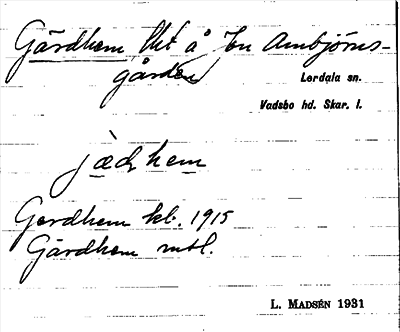 Gärdhem lht å en Ambjörns-
gården
Lerdala sn.
Vadsbo hd. Skar. l.
jædhem
Gerdhem kb. 1915
Gärdhem mtl.
L. MADSÉN 1931